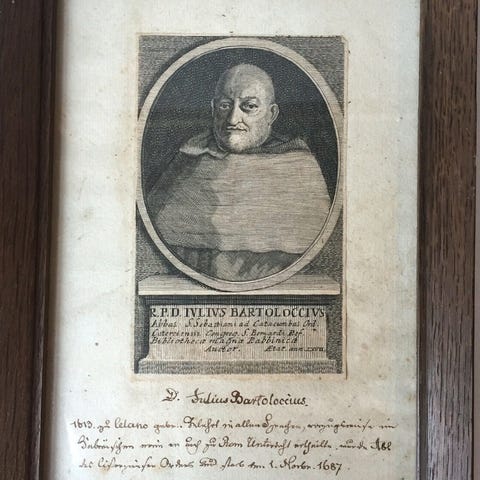 R.P.D. IULIUS BARTOLOCCIUS
Abbas S. Sebastiani ad Catacumbas Ord.
Cisterciensis Congreg. S. Bernardi Ref.
Bibliothecæ magnæ Rabbinicæ
Auctor. Ætat. ann.
D. Julius Bartoloccius.
1613. zu Celano gebor. in allen Sprachen, vorzugsweise im
Hebräischen worin er auch zu Rom Unterricht ertheilte, wurde Abt
des Cisterzienser Ordens und starb am 1. Novbr. 1687.